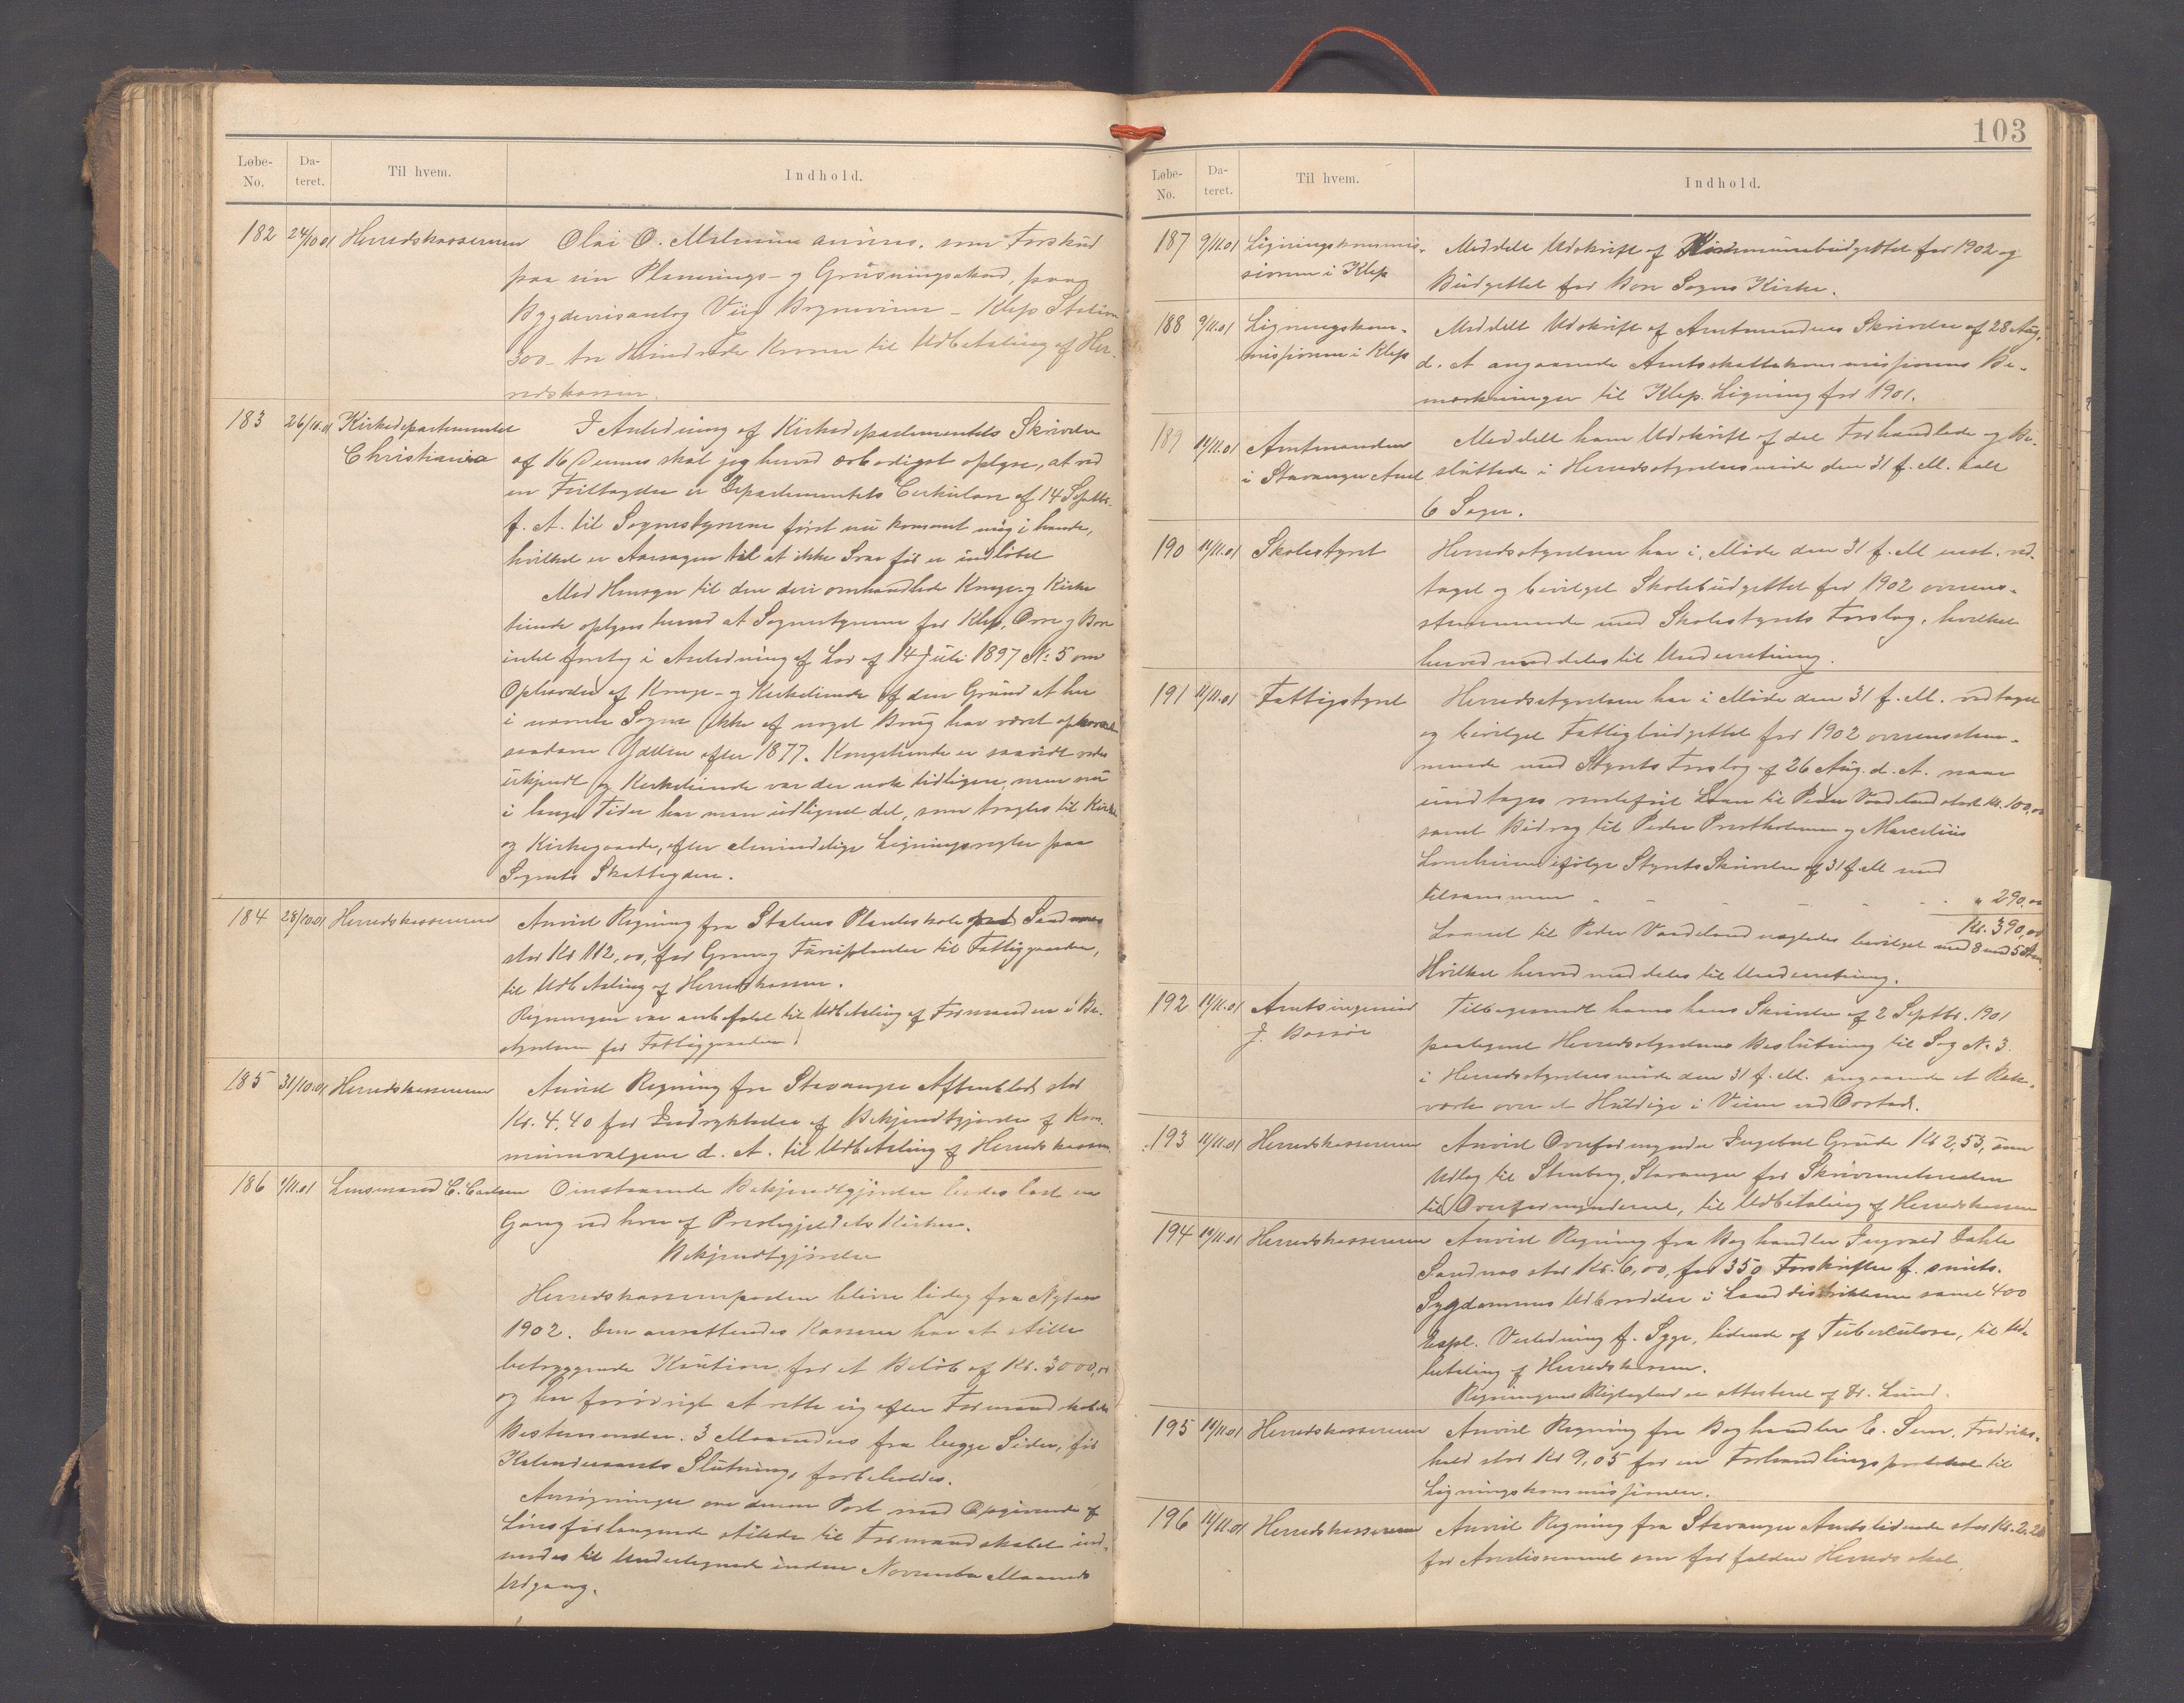 Løbe-No. Da-teret. Til hvem. Indhold.
182 24/10 01 Herredskassereren Olai O. Malmin anvises som Forskud
paa sin Planerings- og Grusningsakord, paa
Bygdeveisanlæg Vig Bryneveien - Klep Station
300 - tre Hundrede Kroner til Udbetaling af Her-
redskassen.
183 26/10.01 Kirkedepartementet I Anledning af Kirkedepartementets Skrivelse
Christiania af 16 Dennes skal jeg herved ærbødigst oplyse, at ved
en Feiltagelse er Departementets Cirkulære af 14 Septbr.
f. A. til Sognestyrerne først nu kommet mig i hænde,
hvilket er Aarsagen til at ikke Svar før er indløbet
Med Hensyn til den deri omhandlede Konge- og Kirke
tiende oplyses herved at Sognestyrerne for Klep, Orre og Bore
intet foretog i Anledning af Lov af 14 Juli 1897 No 5 om
Ophævelse af Konge- og Kirketiende af den Grund at her
i nævnte Sogne ikke af noget Brug har været opkrævet
saadan Ydelse efter 1877. Kongetiende er saavidt vides
ukjendt og Kirketiende var der nok tidligere, men nu
i lange Tider har man udlignet det, som trænges til Kirke
og Kirkegaarde, efter almindelige Ligningsregler paa
Sognets Skatteydere.
184 28/10 01 Herredskassereren Anvist Regning fra Statens Planteskole Sandnes
stor Kr 112,00, for Gran og Furuplanter til Fattiggaarden,
til Udbetaling af Herredskassen.
Regningen var anbefalet til Udbetaling af Formanden i Be-
styrelsen for Fattiggaarden.
185 31/10.01 Herredskassereren Anvist Regning fra Stavanger Aftenblad stor
Kr. 4,40 for Indrykkelse af Bekjendtgjørelse af Kom-
munevalgene d. A. til Udbetaling af Herredskassen.
186 1/11.01 Lensmand C. Carlsen Omstaaende Bekjendtgjørelse bedes læst en
Gang ved hver af Prestegjeldets Kirker.
Bekjendtgjørelse
Herredskassererposten bliver ledig fra Nytaar
1902. Den ansættendes Kasserer har at stille
betryggende Kaution for et Beløb af Kr. 3000,00
og har forøvrigt at rette sig efter Formandskabets
Bestemmelser. 3 Maaneders fra begge Sider, før
Kalenderaarets Slutning, forbeholdes.
Ansøgninger om denne Post med Opgivende af
Lønsforlangende stilede til Formandskabet ind-
sendes til Undertegnede inden November Maaneds
Udgang.
103
Løbe-No. Da-teret. Til hvem. Indhold.
187 9/11.01 Ligningskommis- Meddelt Udskrift af Kommunebudgettet for 1902 og
sionen i Klep Budgettet for Bore Sogns Kirke.
188 9/11.01 Ligningskom- Meddelt Udskrift af Amtmandens Skrivelse af 28 Aug.
missionen i Klep d. A angaaende Amtsskattekommissionens Be-
mærkninger til Klep Ligning for 1901.
189 11/11.01 Amtmanden Meddelt ham Udskrift af det Forhandlede og Be-
i Stavanger Amt sluttede i Herredsstyrelsesmøde den 31 f. M. ialt
6 Sager.
190 11/11.01 Skolestyret Herredsstyrelsen har i Møde den 31 f. M enst. ved-
taget og bevilget Skolebudgettet for 1902 overens-
stemmende med Skolestyrets Forslag, hvilket
herved meddeles til Underretning.
191 11/11.01 Fattigstyret Herredsstyrelsen har i Møde den 31 f. M. vedtaget
og bevilget Fattigbudgettet for 1902 overensstem-
mende med Styrets Forslag af 26 Aug. d. A. naar
undtages rentefrit Laan til Peder Vaadeland stort kr. 100,00
samt Bidrag til Peder Prestholmen og Marcelius
ifølge Styrets Skrivelse af 31 f. M med
tilsammen - - - - - „ 290,00
Kr. 390,00
Laanet til Peder Vaadeland nægtedes bevilget med 8 mod 5 St.
Hvilket herved meddeles til Underretning.
192 11/11.01 Amtsingeniør Tilbagesendt hans Skrivelse af 2 Septbr. 1901
J. paategnet Herredsstyrelsens Beslutning til Sag No 3
i Herredsstyrelsesmøde den 31 f. M. angaaende et Ræk-
værk over et i Veien ved Orstad.
193 11/11.01 Herredskassereren Anvist Overformynder Ingebret Grude Kr 2,53, som
Udlæg til Stenberg, Stavanger for Skrivematerialer
til Overformynderiet, til Udbetaling af Herredskassen
194 11/11.01 Herredskassereren Anvist Regning fra Boghandler Ingvald Dahle
Sandnes stor Kr. 6,00, for 350 Forskrifter f. smits.
Sygdommes Udbredelse i Landdistrikterne samt 400
Expl. Veiledning f. Syge, lidende af Tuberkulose, til Ud-
betaling af Herredskassen.
Regningens Rigtighed er attesteret af Dr. Lund.
195 11/11.01 Herredskassereren Anvist Regning fra Boghandler E. Sem, Fredriks-
hald stor Kr 9,05 for en Forhandlingsprotokol til
Ligningskommissionen.
196 11/11.01 Herredskassereren Anvist Regning fra Stavanger Amtstidende stor Kr. 2,20
for Avertissement om forfalden Herredsskat.